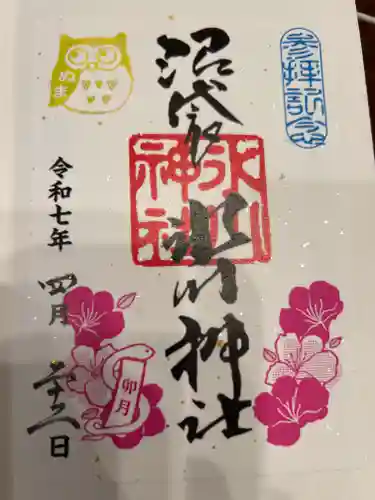 参拝記念
沼袋
氷川神社
氷川神社
ぬま
令和七年
四月
二十二日
卯月